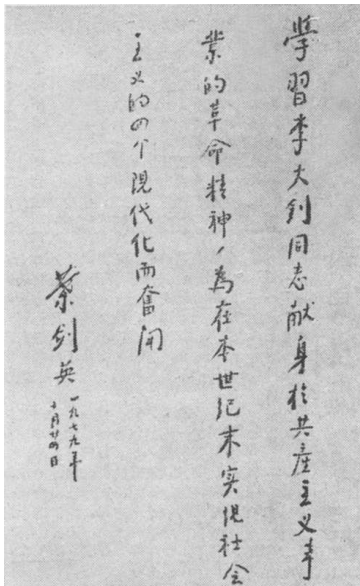 學習李大釗同志献身於共產主义事
業的革命精神，為在本世纪末实現社会
主义的四个現代化而奮鬥
葉剑英
一九七九年
十月廿四日